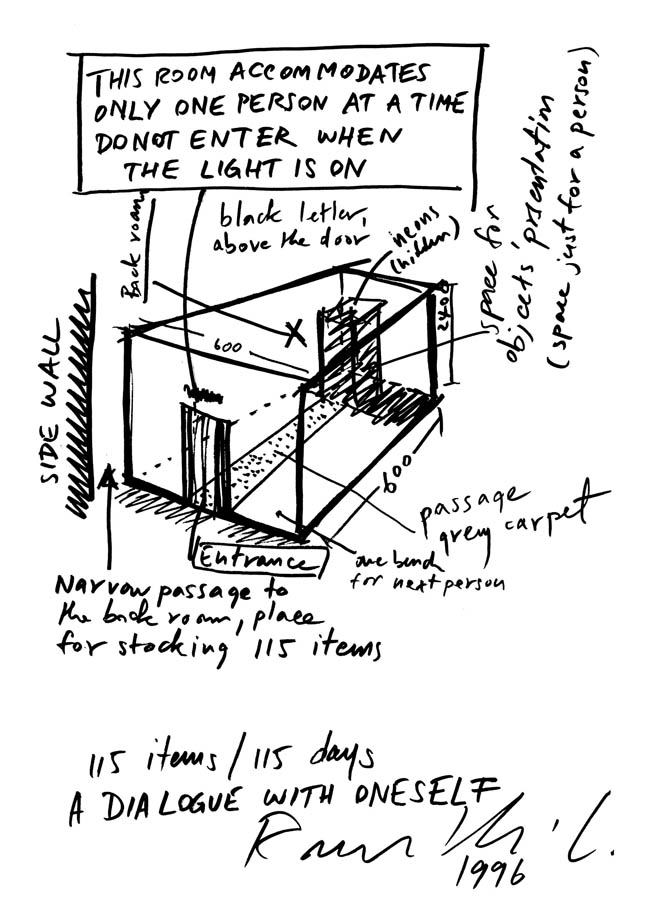 THIS ROOM ACCOMMODATES
ONLY ONE PERSON AT A TIME
DO NOT ENTER WHEN
THE LIGHT IS ON
Back room
black letter,
above the door
neons
(hidden)
space for
objects' presentation
(space just for a person)
SIDE WALL
600
2400
600
passage
grey carpet
Entrance
one bench
for next person
Narrow passage to
the back room, place
for stocking 115 items
115 items / 115 days
A DIALOGUE WITH ONESELF
1996